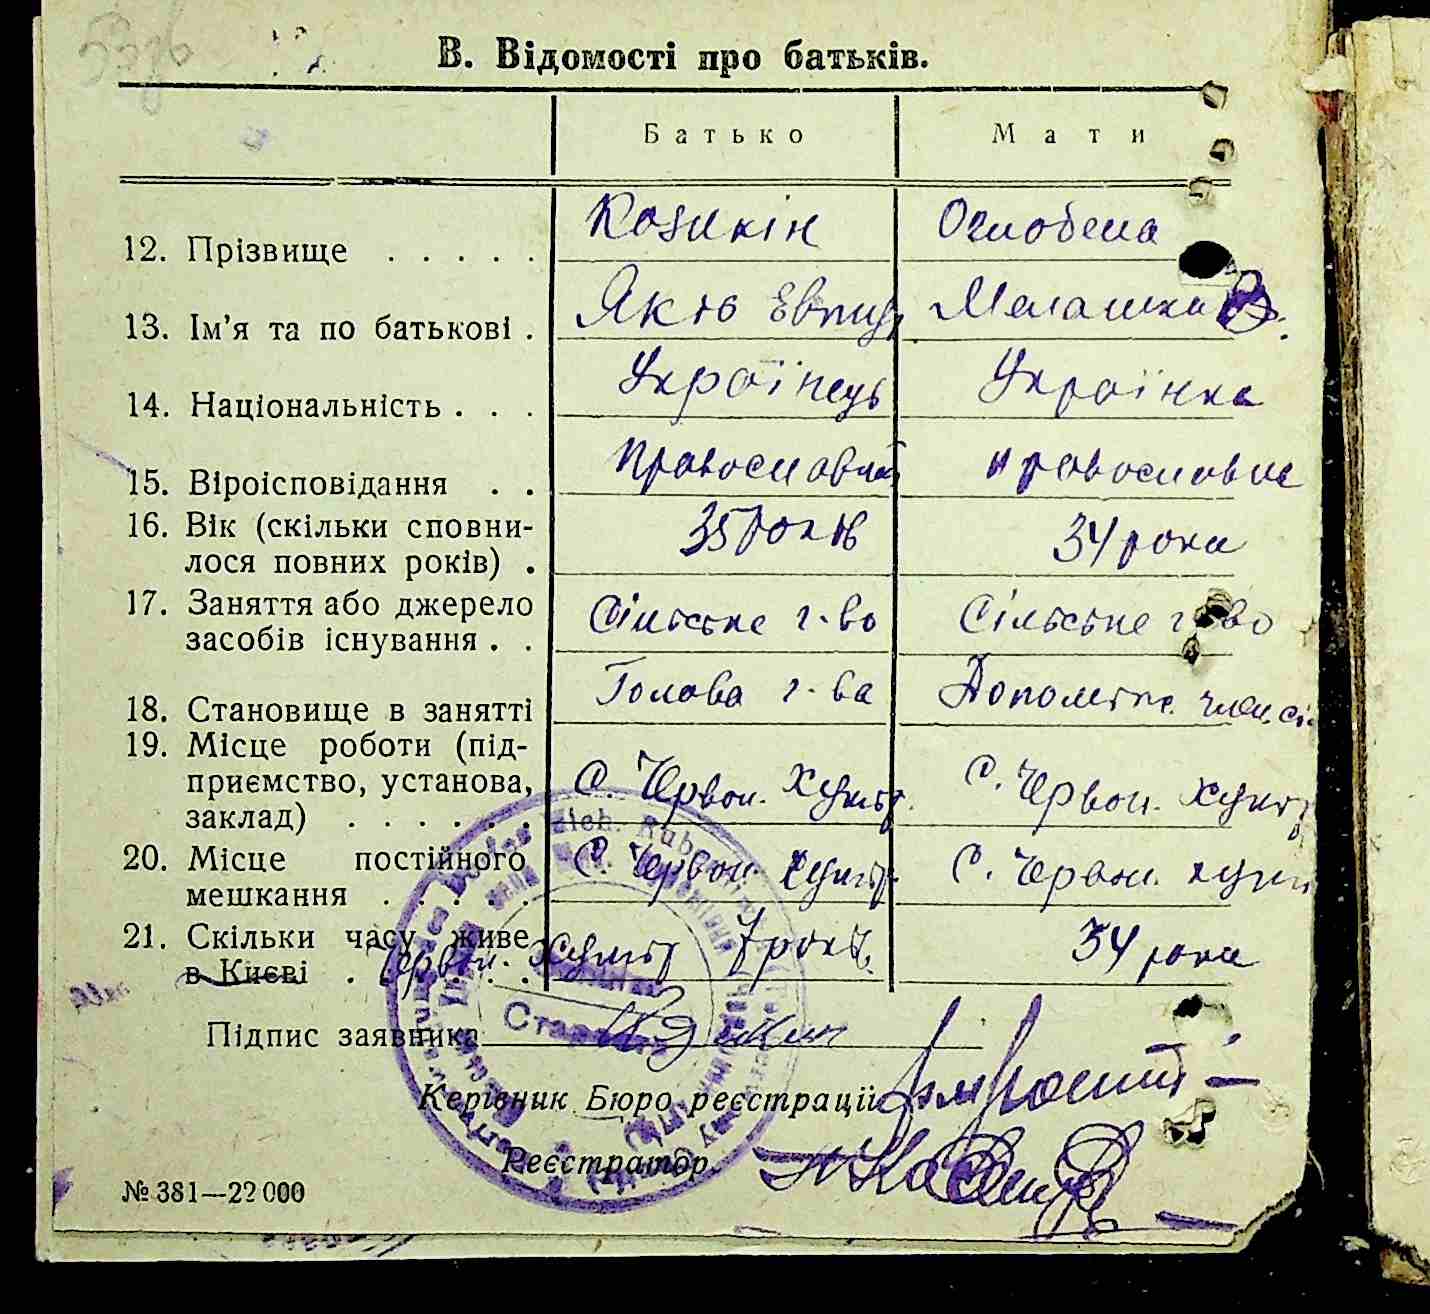 В. Відомості про батьків.
Батько Мати
12. Прізвище . . . . . Козикін Оглобена
13. Ім'я та по батькові . Яків Мелашка В.
14. Національність . . . Українець Українка
15. Віроісповідання . . Православний православна
16. Вік (скільки сповни-
лося повних років) . 35 років 34 роки
17. Заняття або джерело
засобів існування . . Сільське г-во Сільське г-во
18. Становище в занятті Голова г-ва Допоміжн. член. сі
19. Місце роботи (під-
приємство, установа,
заклад) . . . . . . С. Червон. Хутір. С. Червон. Хутір
20. Місце постійного
мешкання . . . . . С. Червон. хутір. С. Червон. хутір
21. Скільки часу живе
в Києві . . . . . Червон. Хутір 7 років. 34 роки
Підпис заявника
Керівник Бюро реєстрації
Реєстратор.
№ 381—22 000